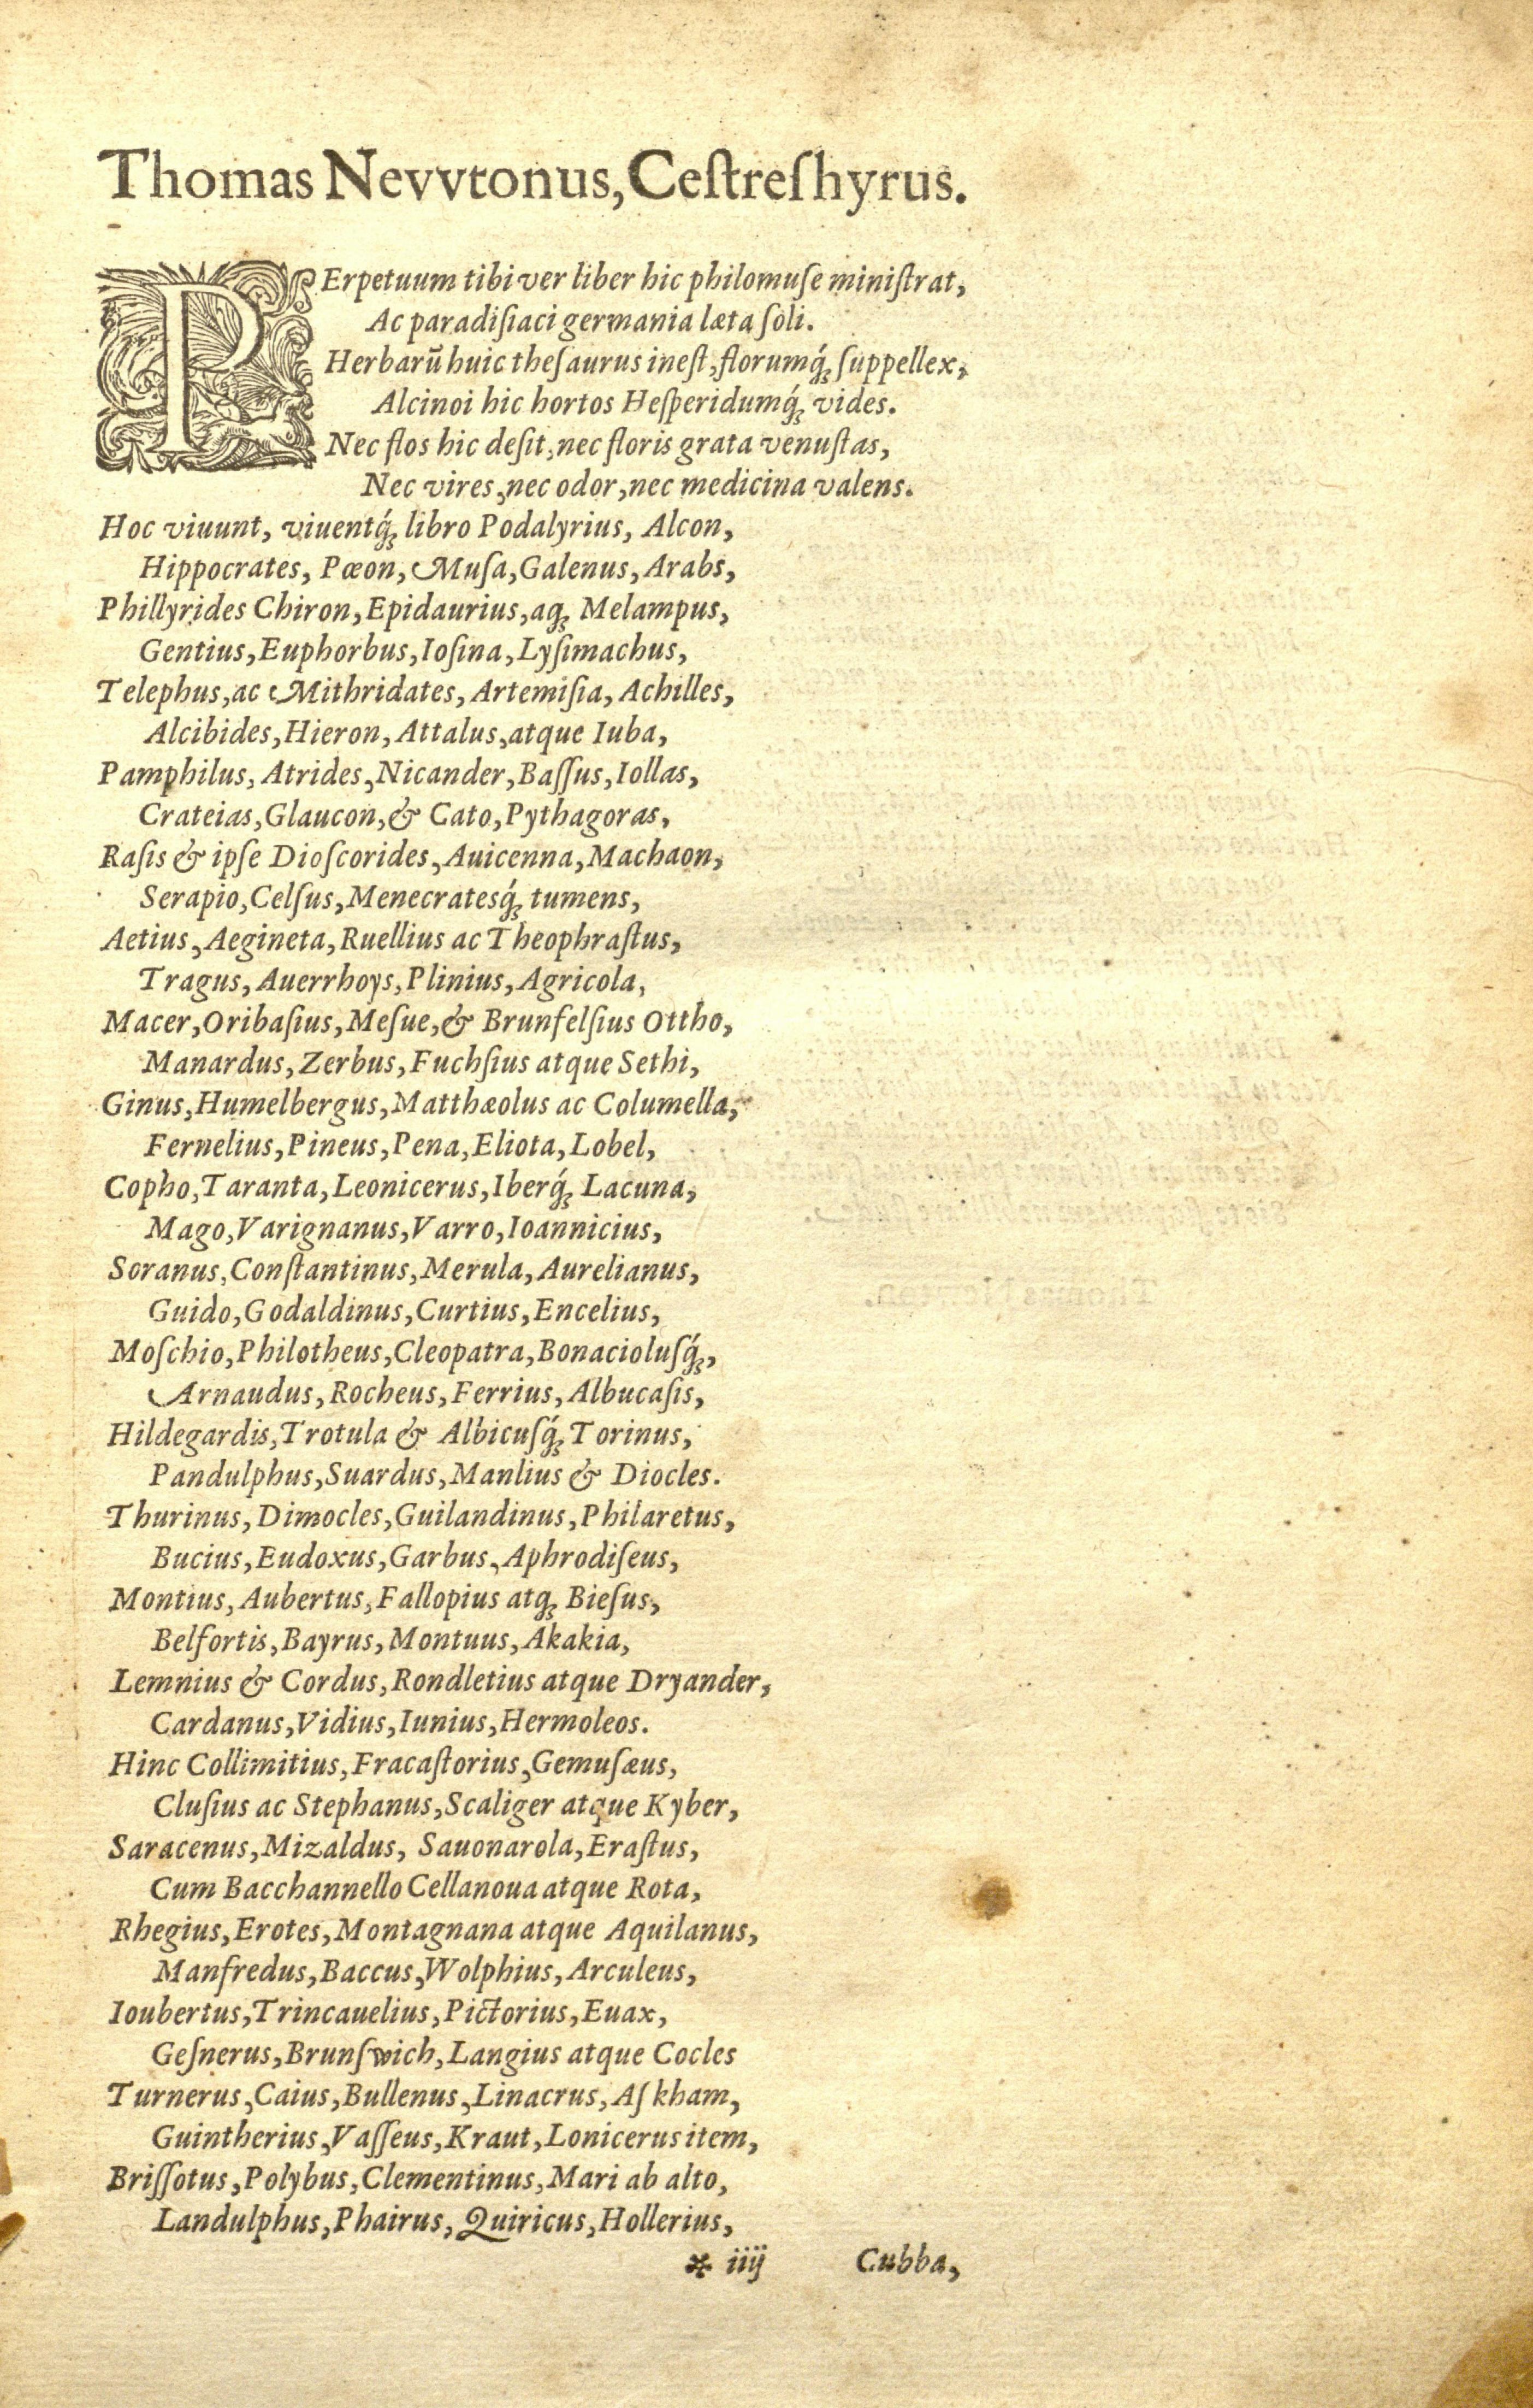 Thomas Nevvtonus, Ceſtreſhyrus.
PErpetuum tibi ver liber hic philomuſe miniſtrat,
Ac paradiſiaci germania læta ſoli.
Herbarū huic theſaurus ineſt, florumq́; ſuppellex,
Alcinoi hic hortos Heſperidumq́; vides.
Nec flos hic deſit, nec floris grata venuſtas,
Nec vires, nec odor, nec medicina valens.
Hoc viuunt, viuentq́; libro Podalyrius, Alcon,
Hippocrates, Pœon, Muſa, Galenus, Arabs,
Phillyrides Chiron, Epidaurius, aq; Melampus,
Gentius, Euphorbus, Ioſina, Lyſimachus,
Telephus, ac Mithridates, Artemiſia, Achilles,
Alcibides, Hieron, Attalus, atque Iuba,
Pamphilus, Atrides, Nicander, Baſſus, Iollas,
Crateias, Glaucon, & Cato, Pythagoras,
Raſis & ipſe Dioſcorides, Auicenna, Machaon,
Serapio, Celſus, Menecratesq́; tumens,
Aetius, Aegineta, Ruellius ac Theophraſtus,
Tragus, Auerrhoys, Plinius, Agricola,
Macer, Oribaſius, Meſue, & Brunfelſius Ottho,
Manardus, Zerbus, Fuchſius atque Sethi,
Ginus, Humelbergus, Matthæolus ac Columella,
Fernelius, Pineus, Pena, Eliota, Lobel,
Copho, Taranta, Leonicerus, Iberq́; Lacuna,
Mago, Varignanus, Varro, Ioannicius,
Soranus, Conſtantinus, Merula, Aurelianus,
Guido, Godaldinus, Curtius, Encelius,
Moſchio, Philotheus, Cleopatra, Bonacioluſq́;,
Arnaudus, Rocheus, Ferrius, Albucaſis,
Hildegardis, Trotula & Albicuſq́; Torinus,
Pandulphus, Suardus, Manlius & Diocles.
Thurinus, Dimocles, Guilandinus, Philaretus,
Bucius, Eudoxus, Garbus, Aphrodiſeus,
Montius, Aubertus, Fallopius atq; Bieſus,
Belfortis, Bayrus, Montuus, Akakia,
Lemnius & Cordus, Rondletius atque Dryander,
Cardanus, Vidius, Iunius, Hermoleos.
Hinc Collimitius, Fracaſtorius, Gemuſæus,
Cluſius ac Stephanus, Scaliger atque Kyber,
Saracenus, Mizaldus, Sauonarola, Eraſtus,
Cum Bacchannello Cellanoua atque Rota,
Rhegius, Erotes, Montagnana atque Aquilanus,
Manfredus, Baccus, Wolphius, Arculeus,
Ioubertus, Trincauelius, Pictorius, Euax,
Geſnerus, Brunſwich, Langius atque Cocles
Turnerus, Caius, Bullenus, Linacrus, Aſkham,
Guintherius, Vaſſeus, Kraut, Lonicerus item,
Briſſotus, Polybus, Clementinus, Mari ab alto,
Landulphus, Phairus, Quiricus, Hollerius,
* iiij Cubba,